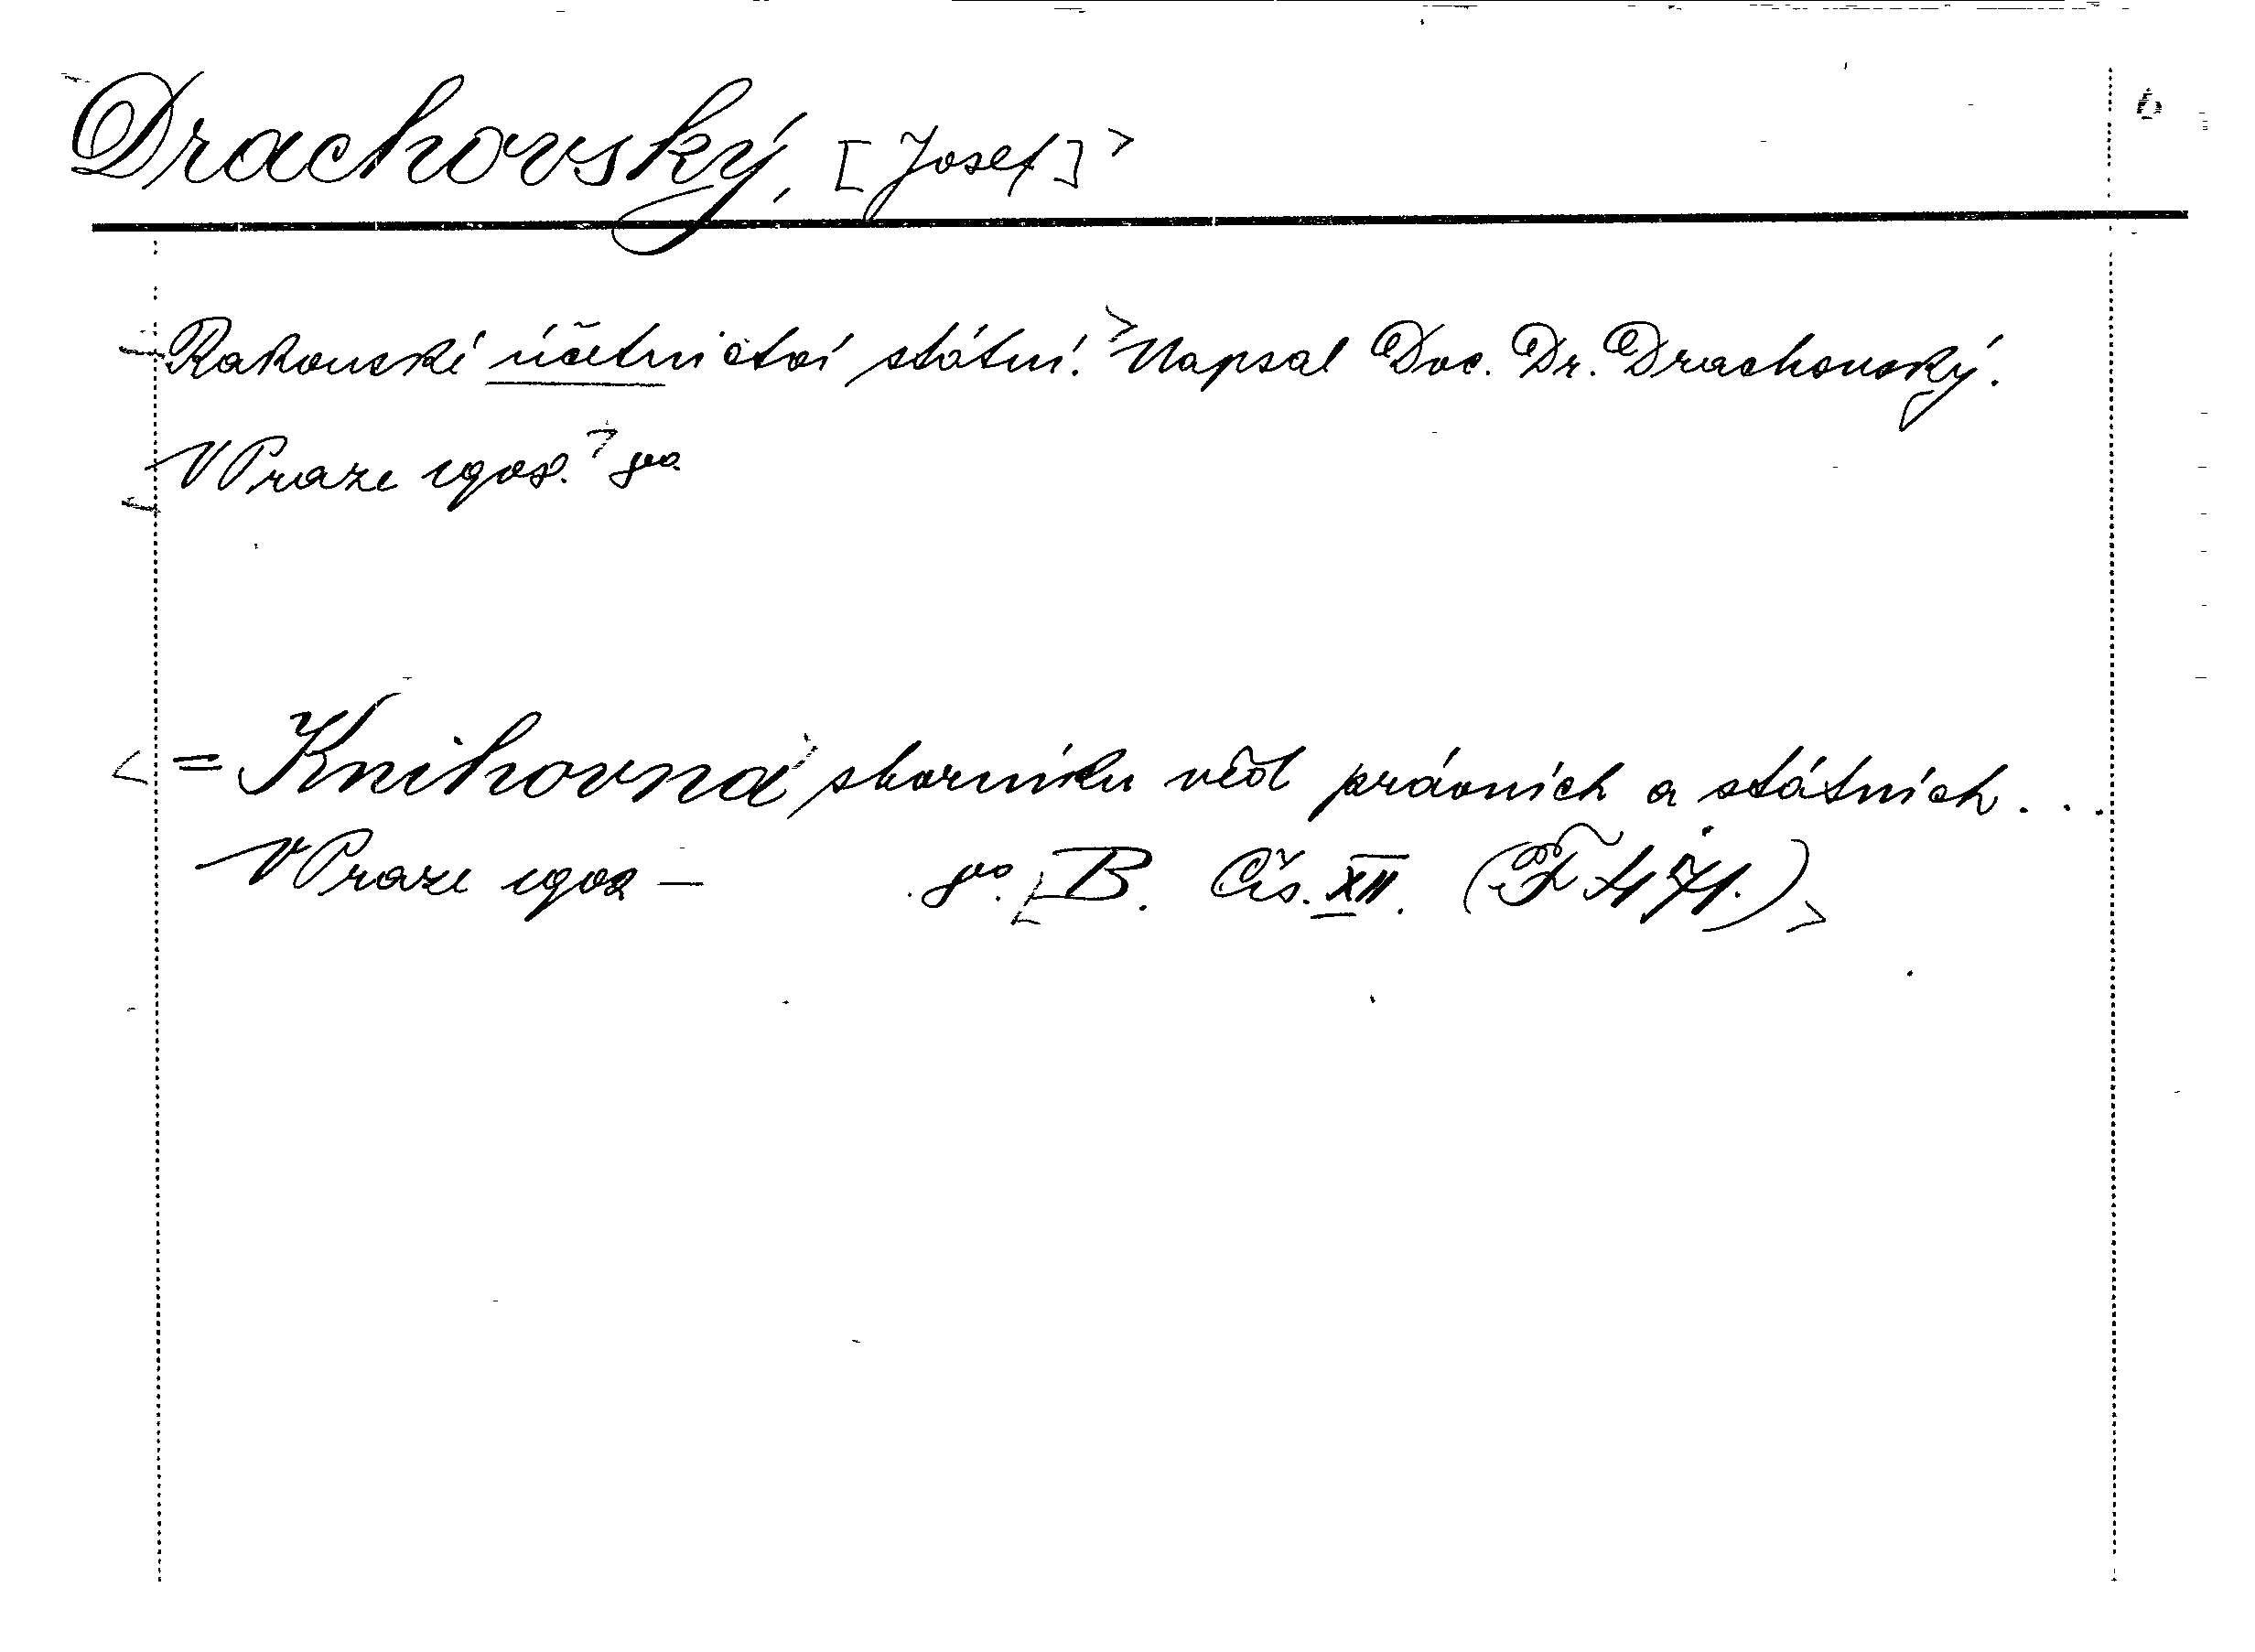 Drachovský, [Josef]
Rakouské účetnictví státní. Napsal Doc. Dr. Drachovský.
V Praze 8º.
= Knihovna sborníku věd právních a státních...
V Praze 1902 – 8º. B. Čís. XII. (F 471.)